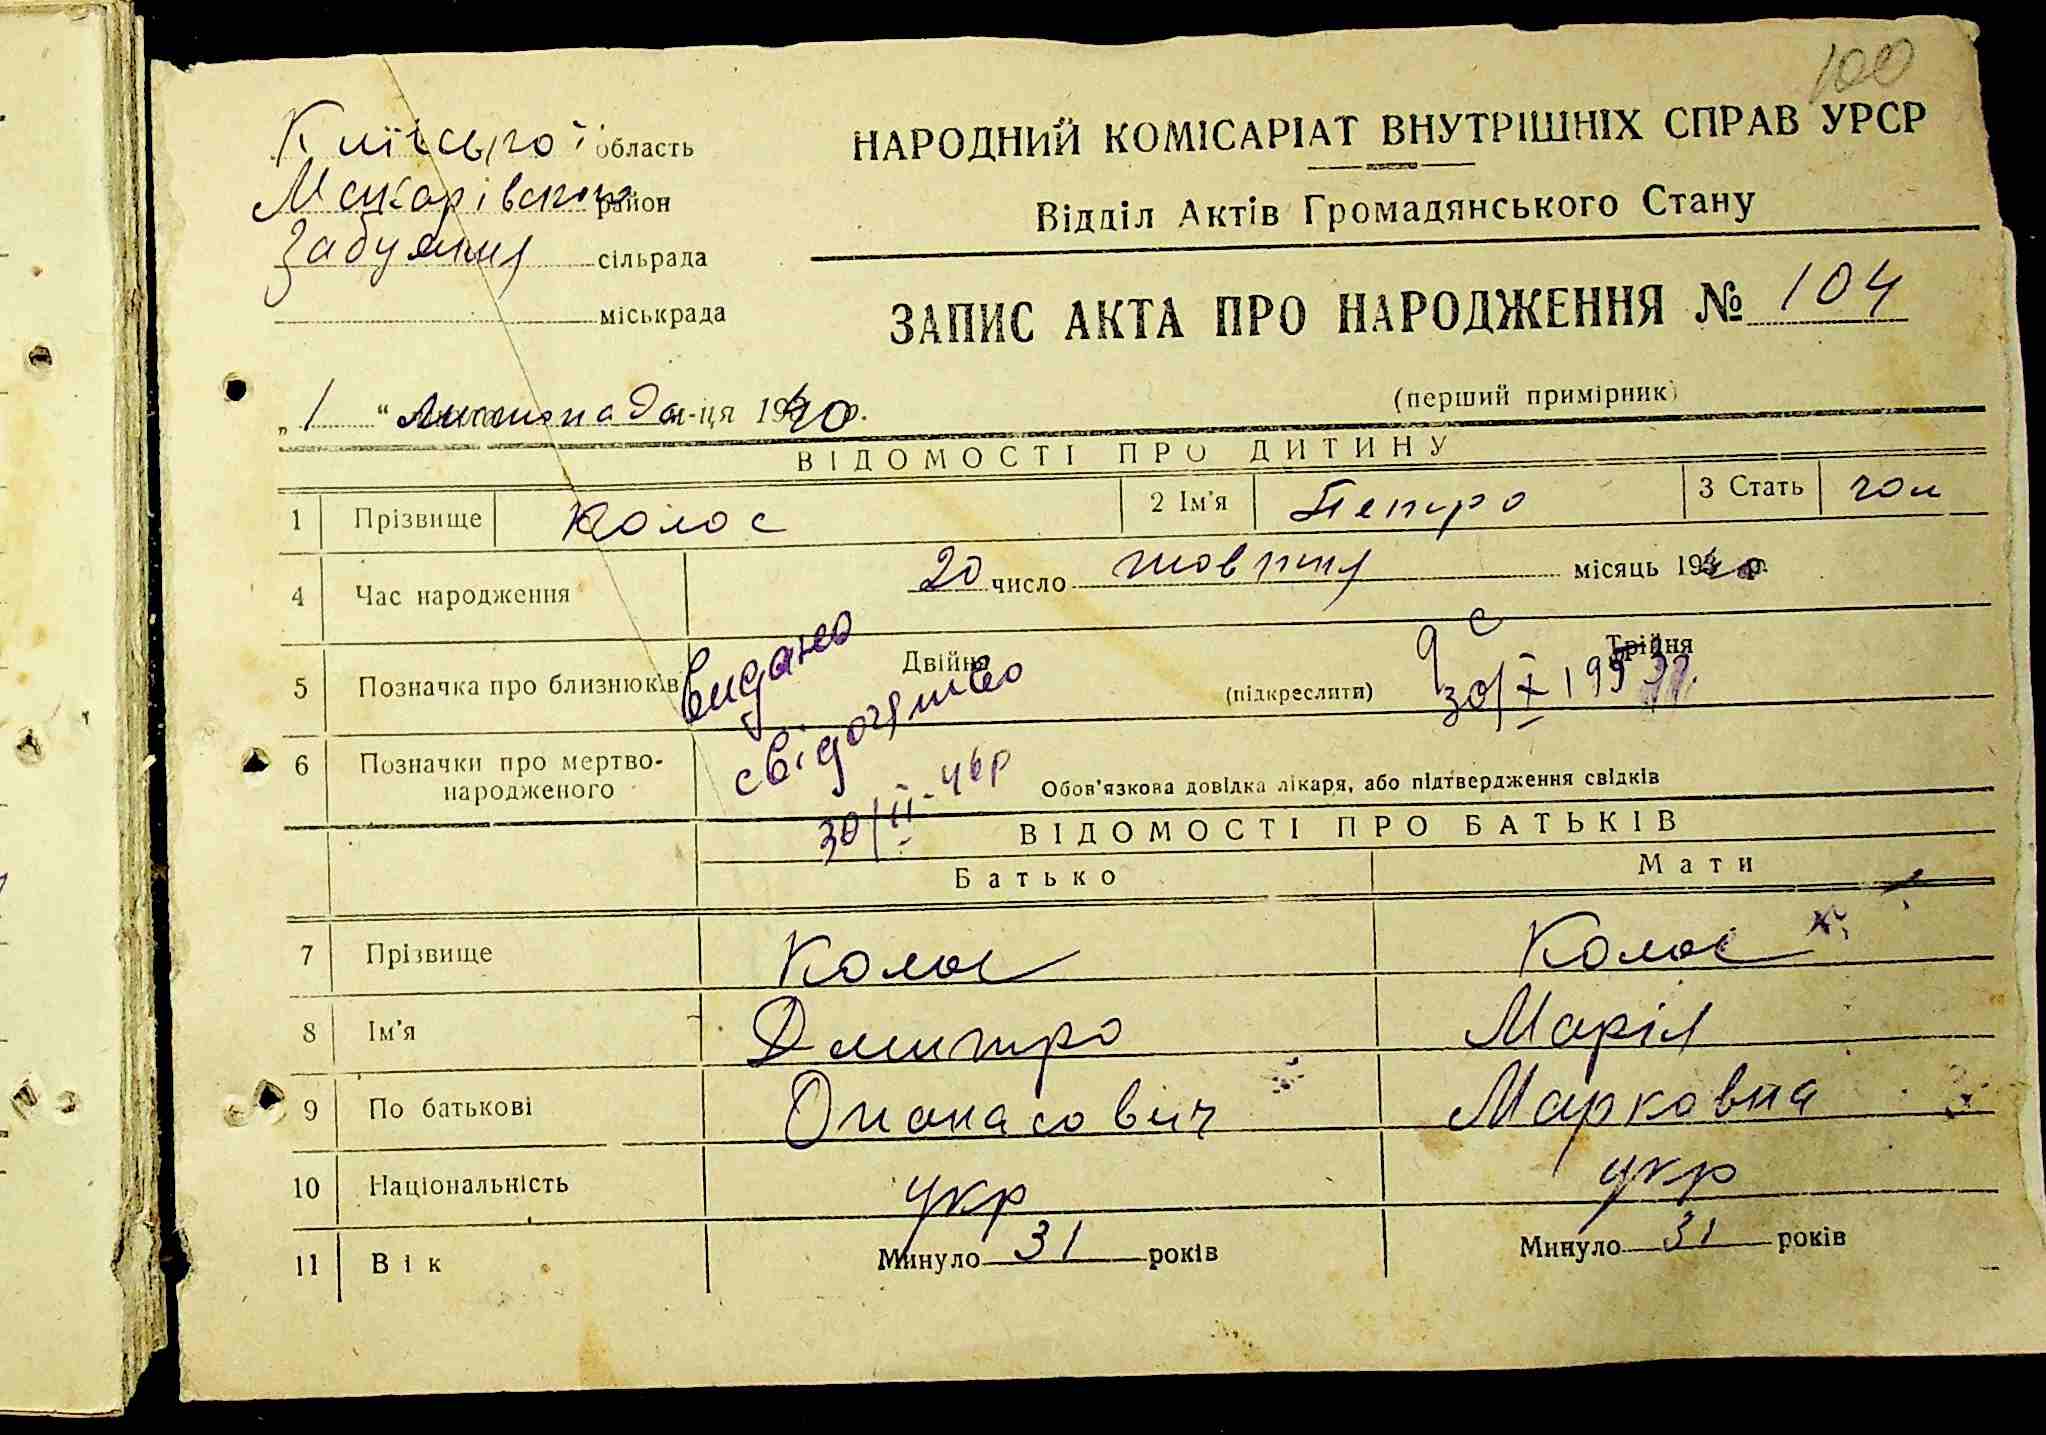 100
Київської область
Макарівський район
Забуяння сільрада
міськрада
НАРОДНИЙ КОМІСАРІАТ ВНУТРІШНІХ СПРАВ УРСР
Відділ Актів Громадянського Стану
ЗАПИС АКТА ПРО НАРОДЖЕННЯ № 104
(перший примірник)
„1“ листопада м-ця 1940 р.
ВІДОМОСТІ ПРО ДИТИНУ
1 Прізвище Колос 2 Ім'я Петро 3 Стать чол
4 Час народження 20 число жовтня місяць 1940 р.
5 Позначка про близнюків Двійня (підкреслити) Трійня
видано
свідоцтво
30/II-46р
6 Позначки про мертво-
народженого
Обов'язкова довідка лікаря, або підтвердження свідків
ВІДОМОСТІ ПРО БАТЬКІВ
Батько Мати
7 Прізвище Колос Колос
8 Ім'я Дмитро Марія
9 По батькові Опанасович Марковна
10 Національність укр укр
11 Вік Минуло 31 років Минуло 31 років